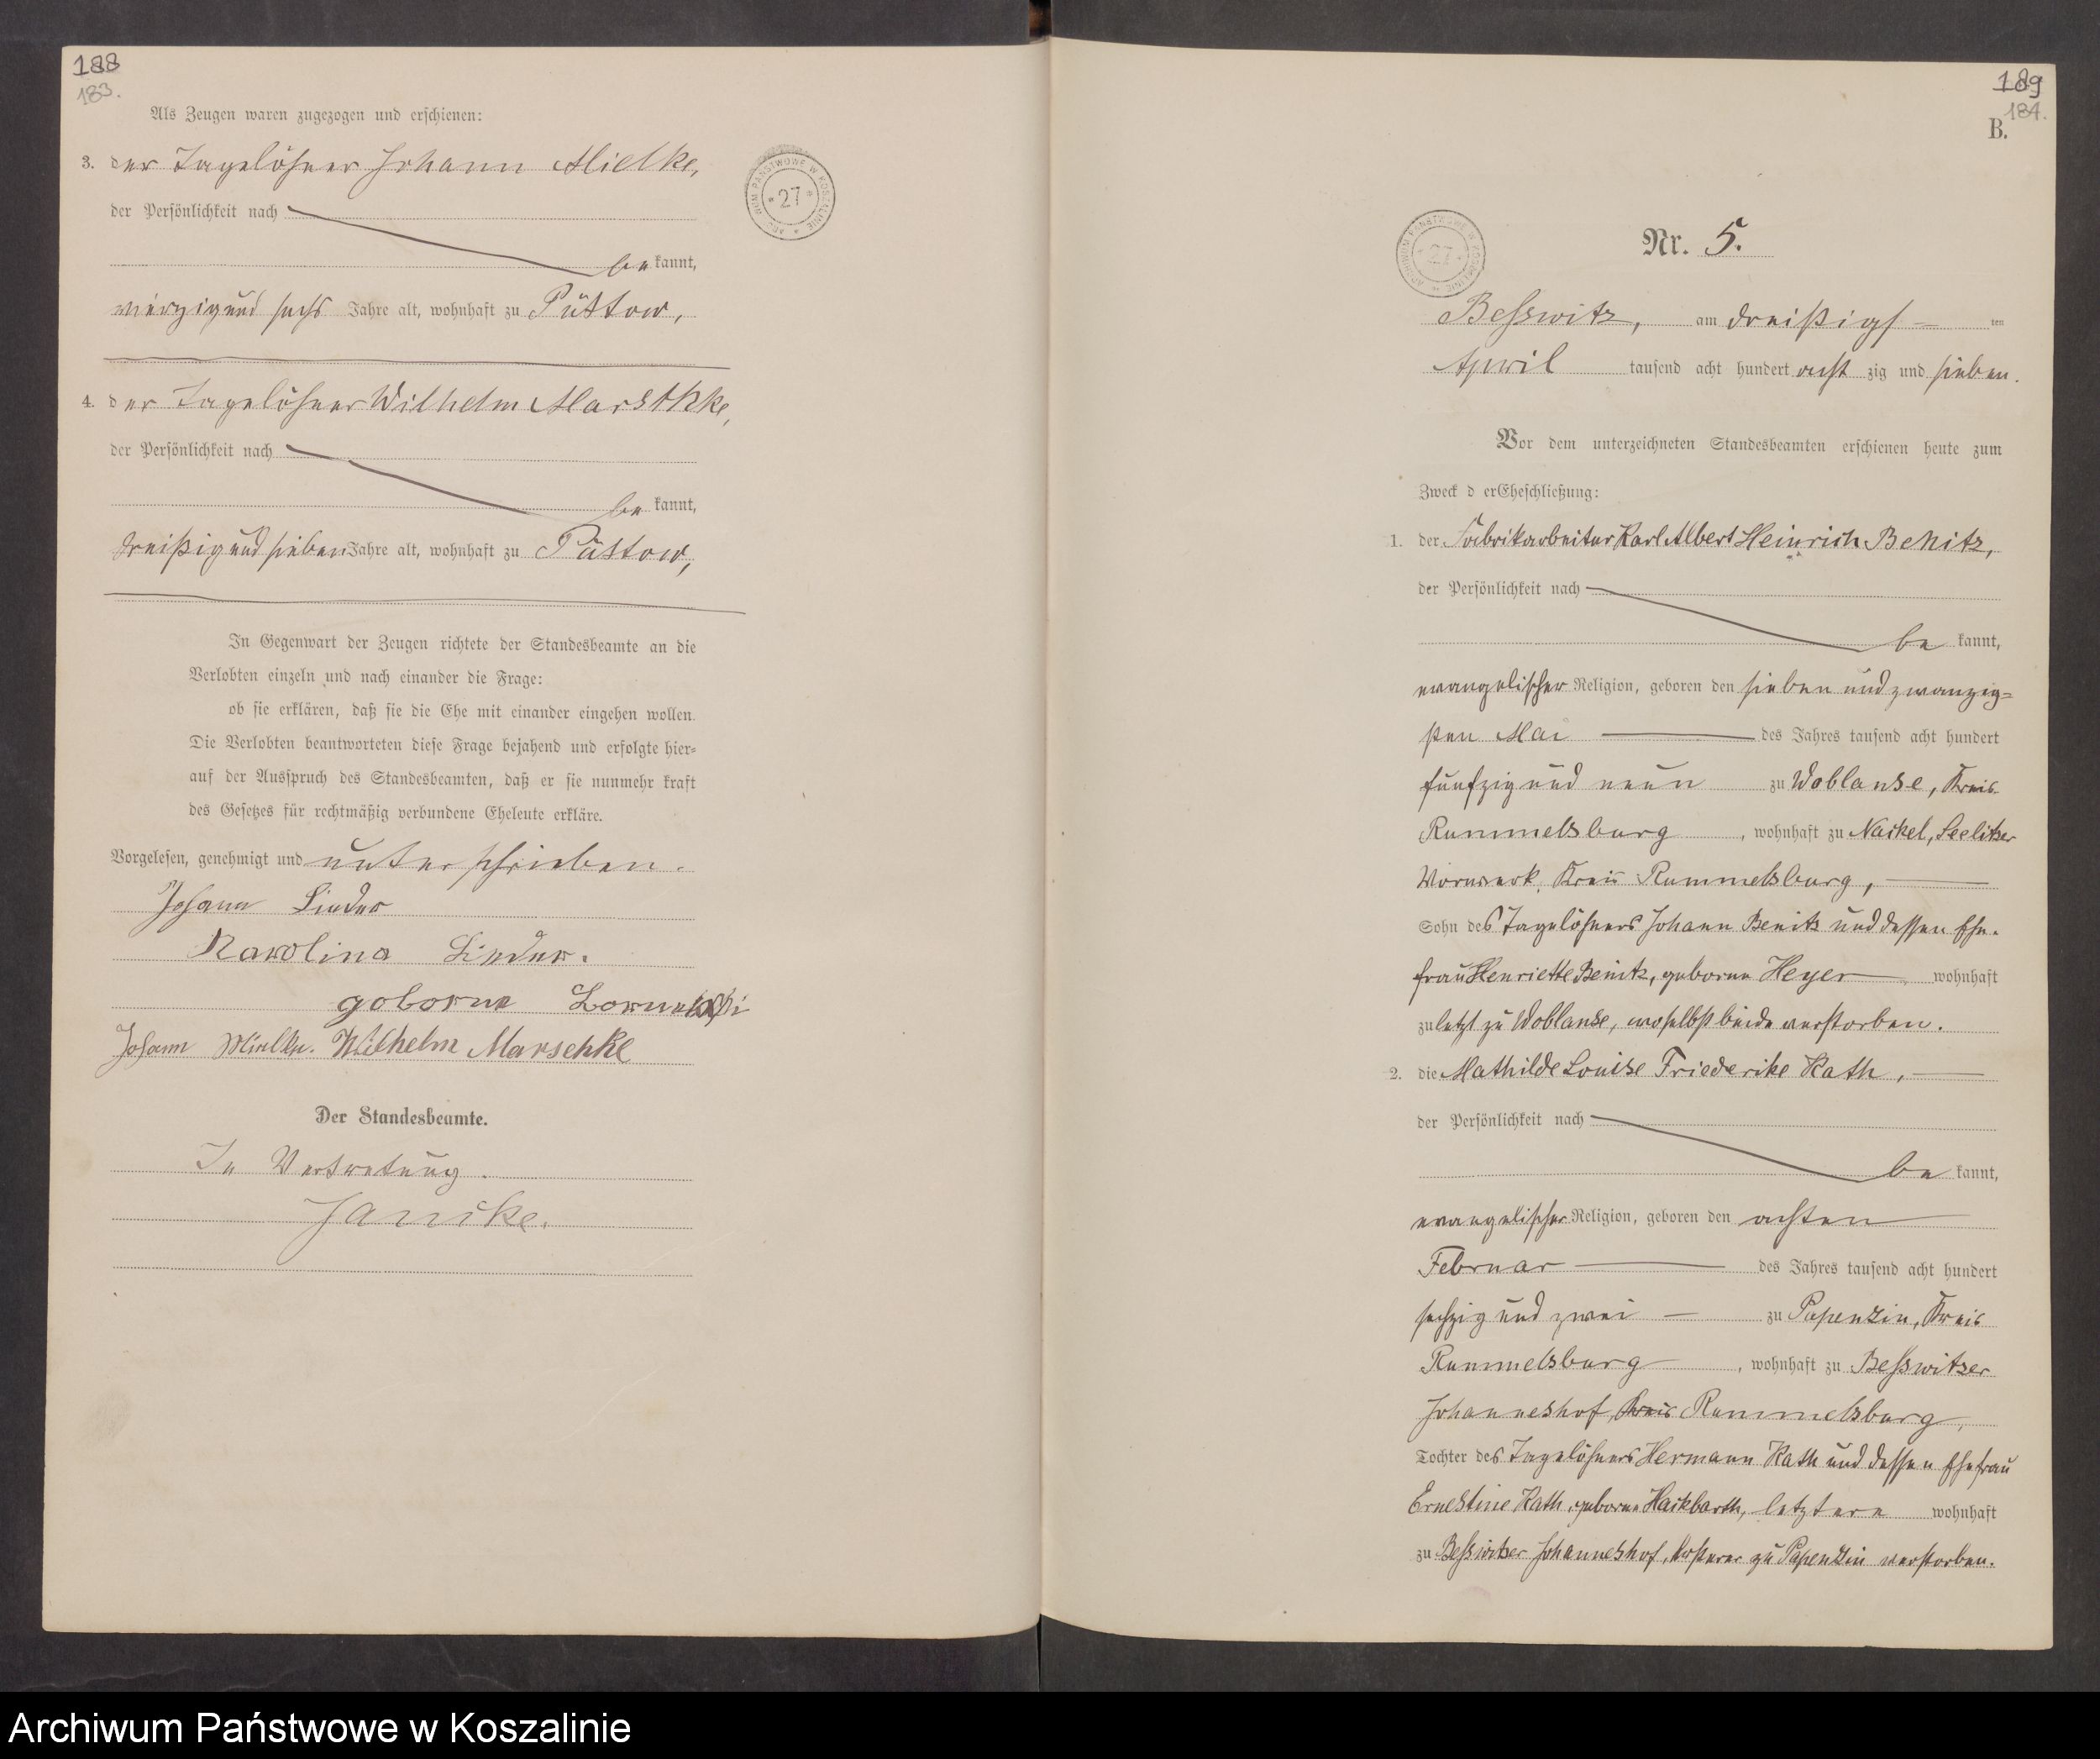 188
183.
Als Zeugen waren zugezogen und erschienen:
3. der Tagelöhner Johann Mielke,
der Persönlichkeit nach
be kannt,
vierzig und sechs Jahre alt, wohnhaft zu Püstow,
4. der Tagelöhner Wilhelm Marschke,
der Persönlichkeit nach
be kannt,
dreißig und sieben Jahre alt, wohnhaft zu Püstow,
In Gegenwart der Zeugen richtete der Standesbeamte an die
Verlobten einzeln und nach einander die Frage:
ob sie erklären, daß sie die Ehe mit einander eingehen wollen.
Die Verlobten beantworteten diese Frage bejahend und erfolgte hier=
auf der Ausspruch des Standesbeamten, daß er sie nunmehr kraft
des Gesetzes für rechtmäßig verbundene Eheleute erkläre.
Vorgelesen, genehmigt und unterschrieben.
Johann Linder
Karolina Linder.
geborne
Johann Mielke. Wilhelm Marschke
Der Standesbeamte.
In Vertretung.
Janike.
ARCHIWUM PAŃSTWOWE W KOSZALINIE * 27 *
189
184.
B.
ARCHIWUM PAŃSTWOWE W KOSZALINIE * 27 *
Nr. 5.
Besswitz, am dreißigs = ten
April tausend acht hundert acht zig und sieben.
Vor dem unterzeichneten Standesbeamten erschienen heute zum
Zweck d erEheschließung:
1. der Fabrikarbeiter Karl Albert Heinrich Benitz,
der Persönlichkeit nach
be kannt,
evangelischer Religion, geboren den sieben und zwanzig=
sten Mai des Jahres tausend acht hundert
fünfzig und neun zu Woblanse, Kreis
Rummelsburg, wohnhaft zu Naikel, Seelitzer
Vorwerk, Kreis Rummelsburg,
Sohn des Tagelöhners Johann Benitz und dessen Ehe-
frau Henriette Benitz, geborne Heyer wohnhaft
zuletzt zu Woblanse, woselbst beide verstorben.
2. die Mathilde Louise Friederike Kath,
der Persönlichkeit nach
be kannt,
evangelischer Religion, geboren den achten
Februar des Jahres tausend acht hundert
sechzig und zwei zu Papenzin, Kreis
Rummelsburg, wohnhaft zu Besswitzer
Johanneshof, Kreis Rummelsburg,
Tochter des Tagelöhners Hermann Kath und dessen Ehefrau
Ernestine Kath, geborne Hackbarth, letztere wohnhaft
zu Besswitzer Johanneshof, ersterer zu Papenzin verstorben.
Archiwum Państwowe w Koszalinie